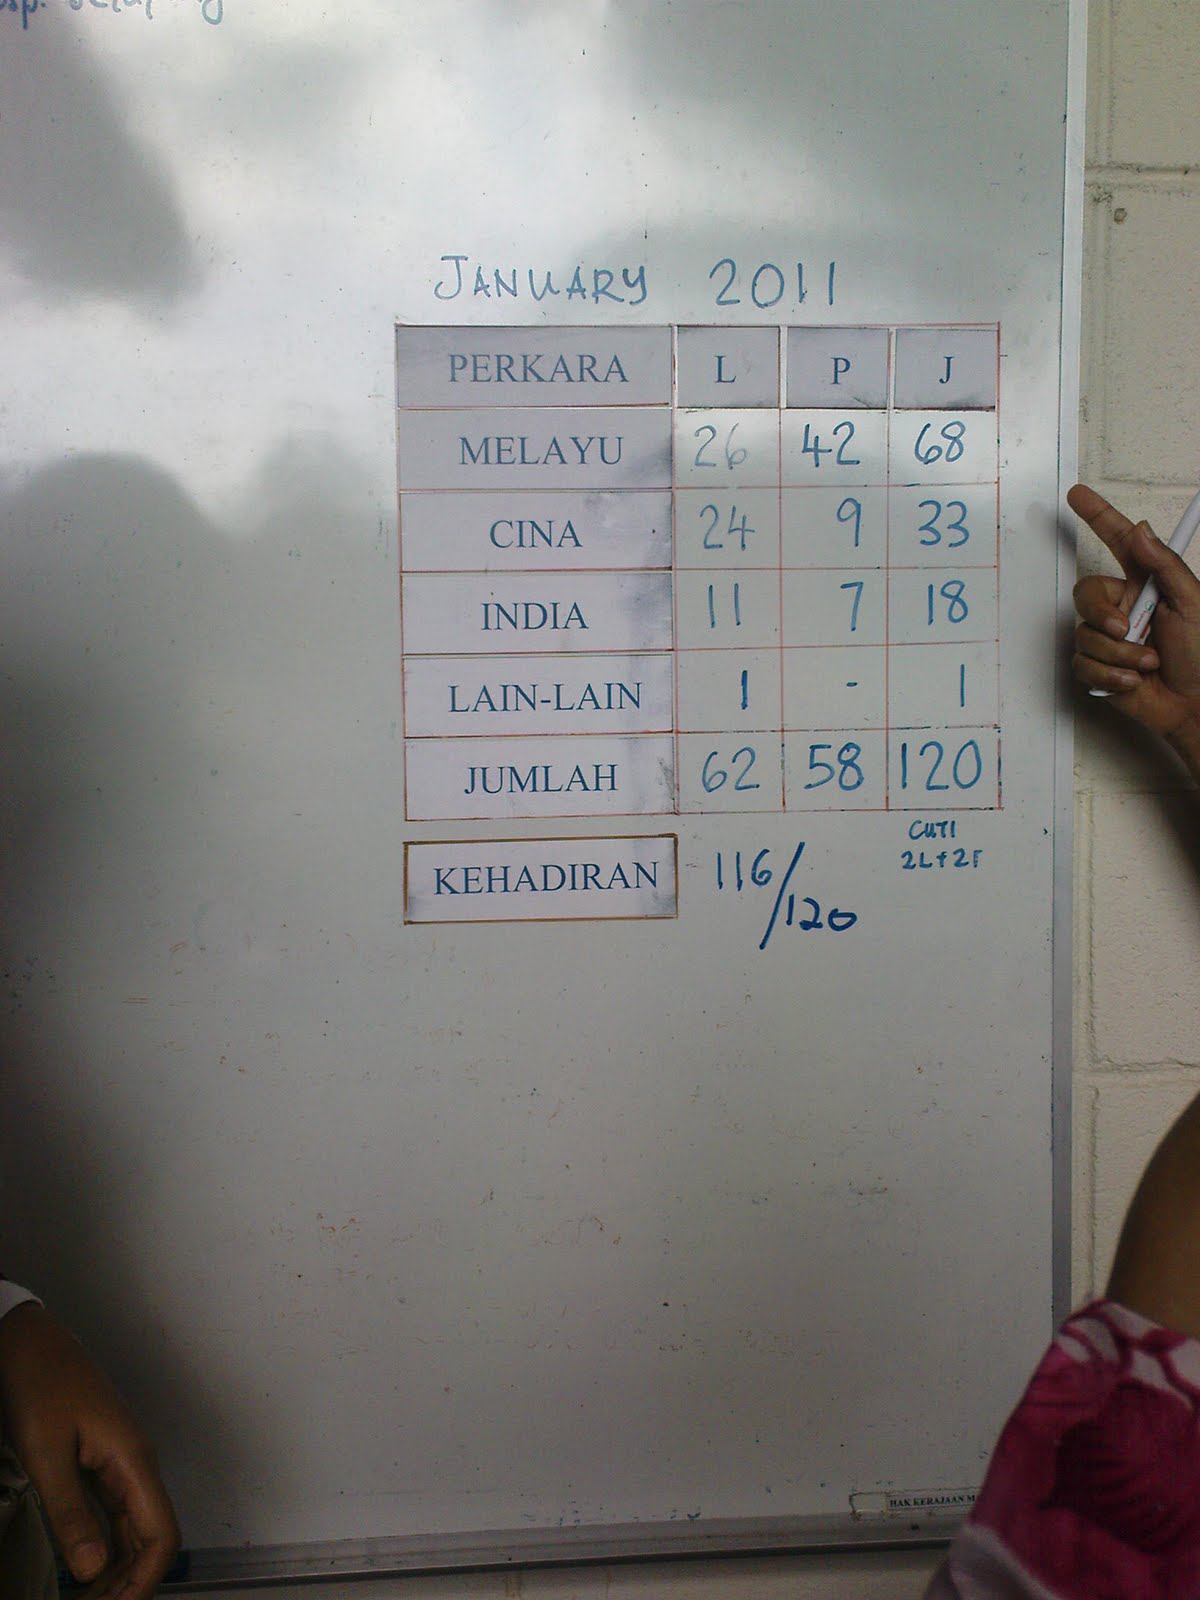 JANUARY 2011
PERKARA L P J
MELAYU 26 42 68
CINA 24 9 33
INDIA 11 7 18
LAIN-LAIN 1 - 1
JUMLAH 62 58 120
CUTI
KEHADIRAN 116/120
HAK KERAJAAN